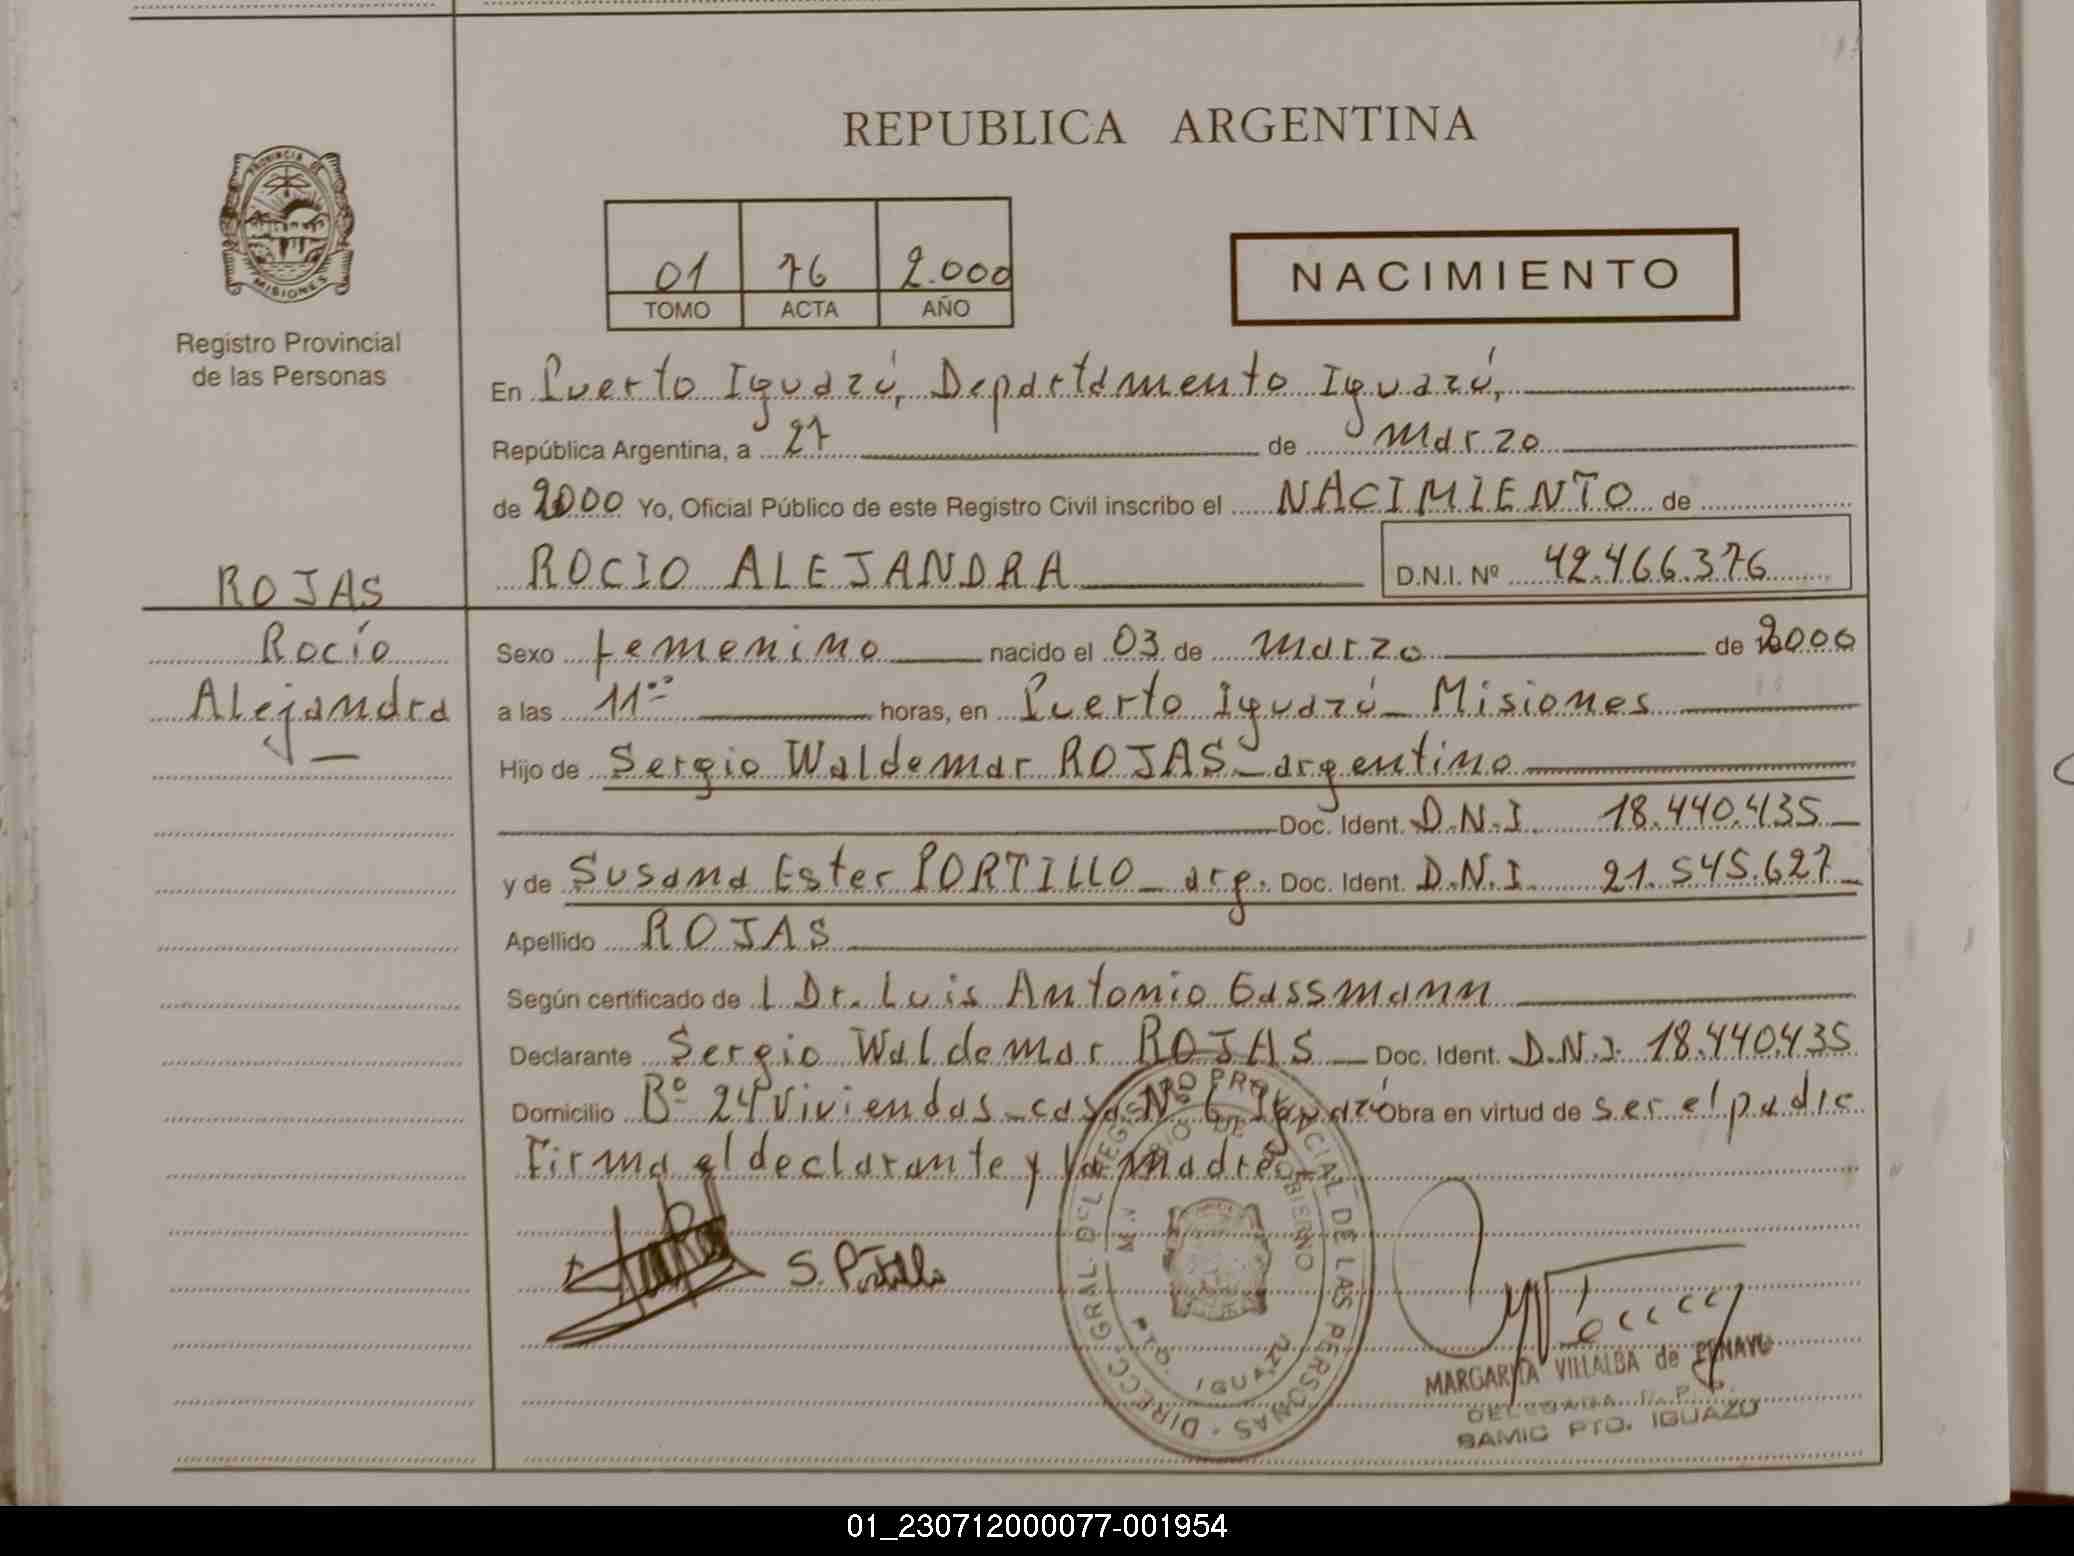 REPUBLICA ARGENTINA
PROVINCIA DE
MISIONES
Registro Provincial
de las Personas
01 76 2.000
TOMO ACTA AÑO
NACIMIENTO
En Puerto Iguazú, Departamento Iguazú,
República Argentina, a 27 de marzo
de 2000 Yo, Oficial Público de este Registro Civil inscribo el NACIMIENTO de
ROCIO ALEJANDRA D.N.I. Nº 42.466.376
ROJAS
Rocío
Alejandra
Sexo femenino nacido el 03 de marzo de 2000
a las 11:00 horas, en Puerto Iguazú - Misiones
Hijo de Sergio Waldemar ROJAS - argentino
Doc. Ident. D.N.I 18.440.435
y de Susana Ester PORTILLO - arg. Doc. Ident. D.N.I 21.545.627
Apellido ROJAS
Según certificado de l Dr. Luis Antonio Gassmann
Declarante Sergio Waldemar ROJAS Doc. Ident. D.N.I. 18.440.435
Domicilio Bº 24 Viviendas - casa Nº 6 Iguazú Obra en virtud de ser el padre
Firma el declarante y la madre
S. Portillo
DIRECC. GRAL. DEL REGISTRO PROVINCIAL DE LAS PERSONAS
GOBIERNO
PTO. IGUAZU
MARGARITA VILLALBA de
SAMIC PTO. IGUAZU
01_230712000077-001954